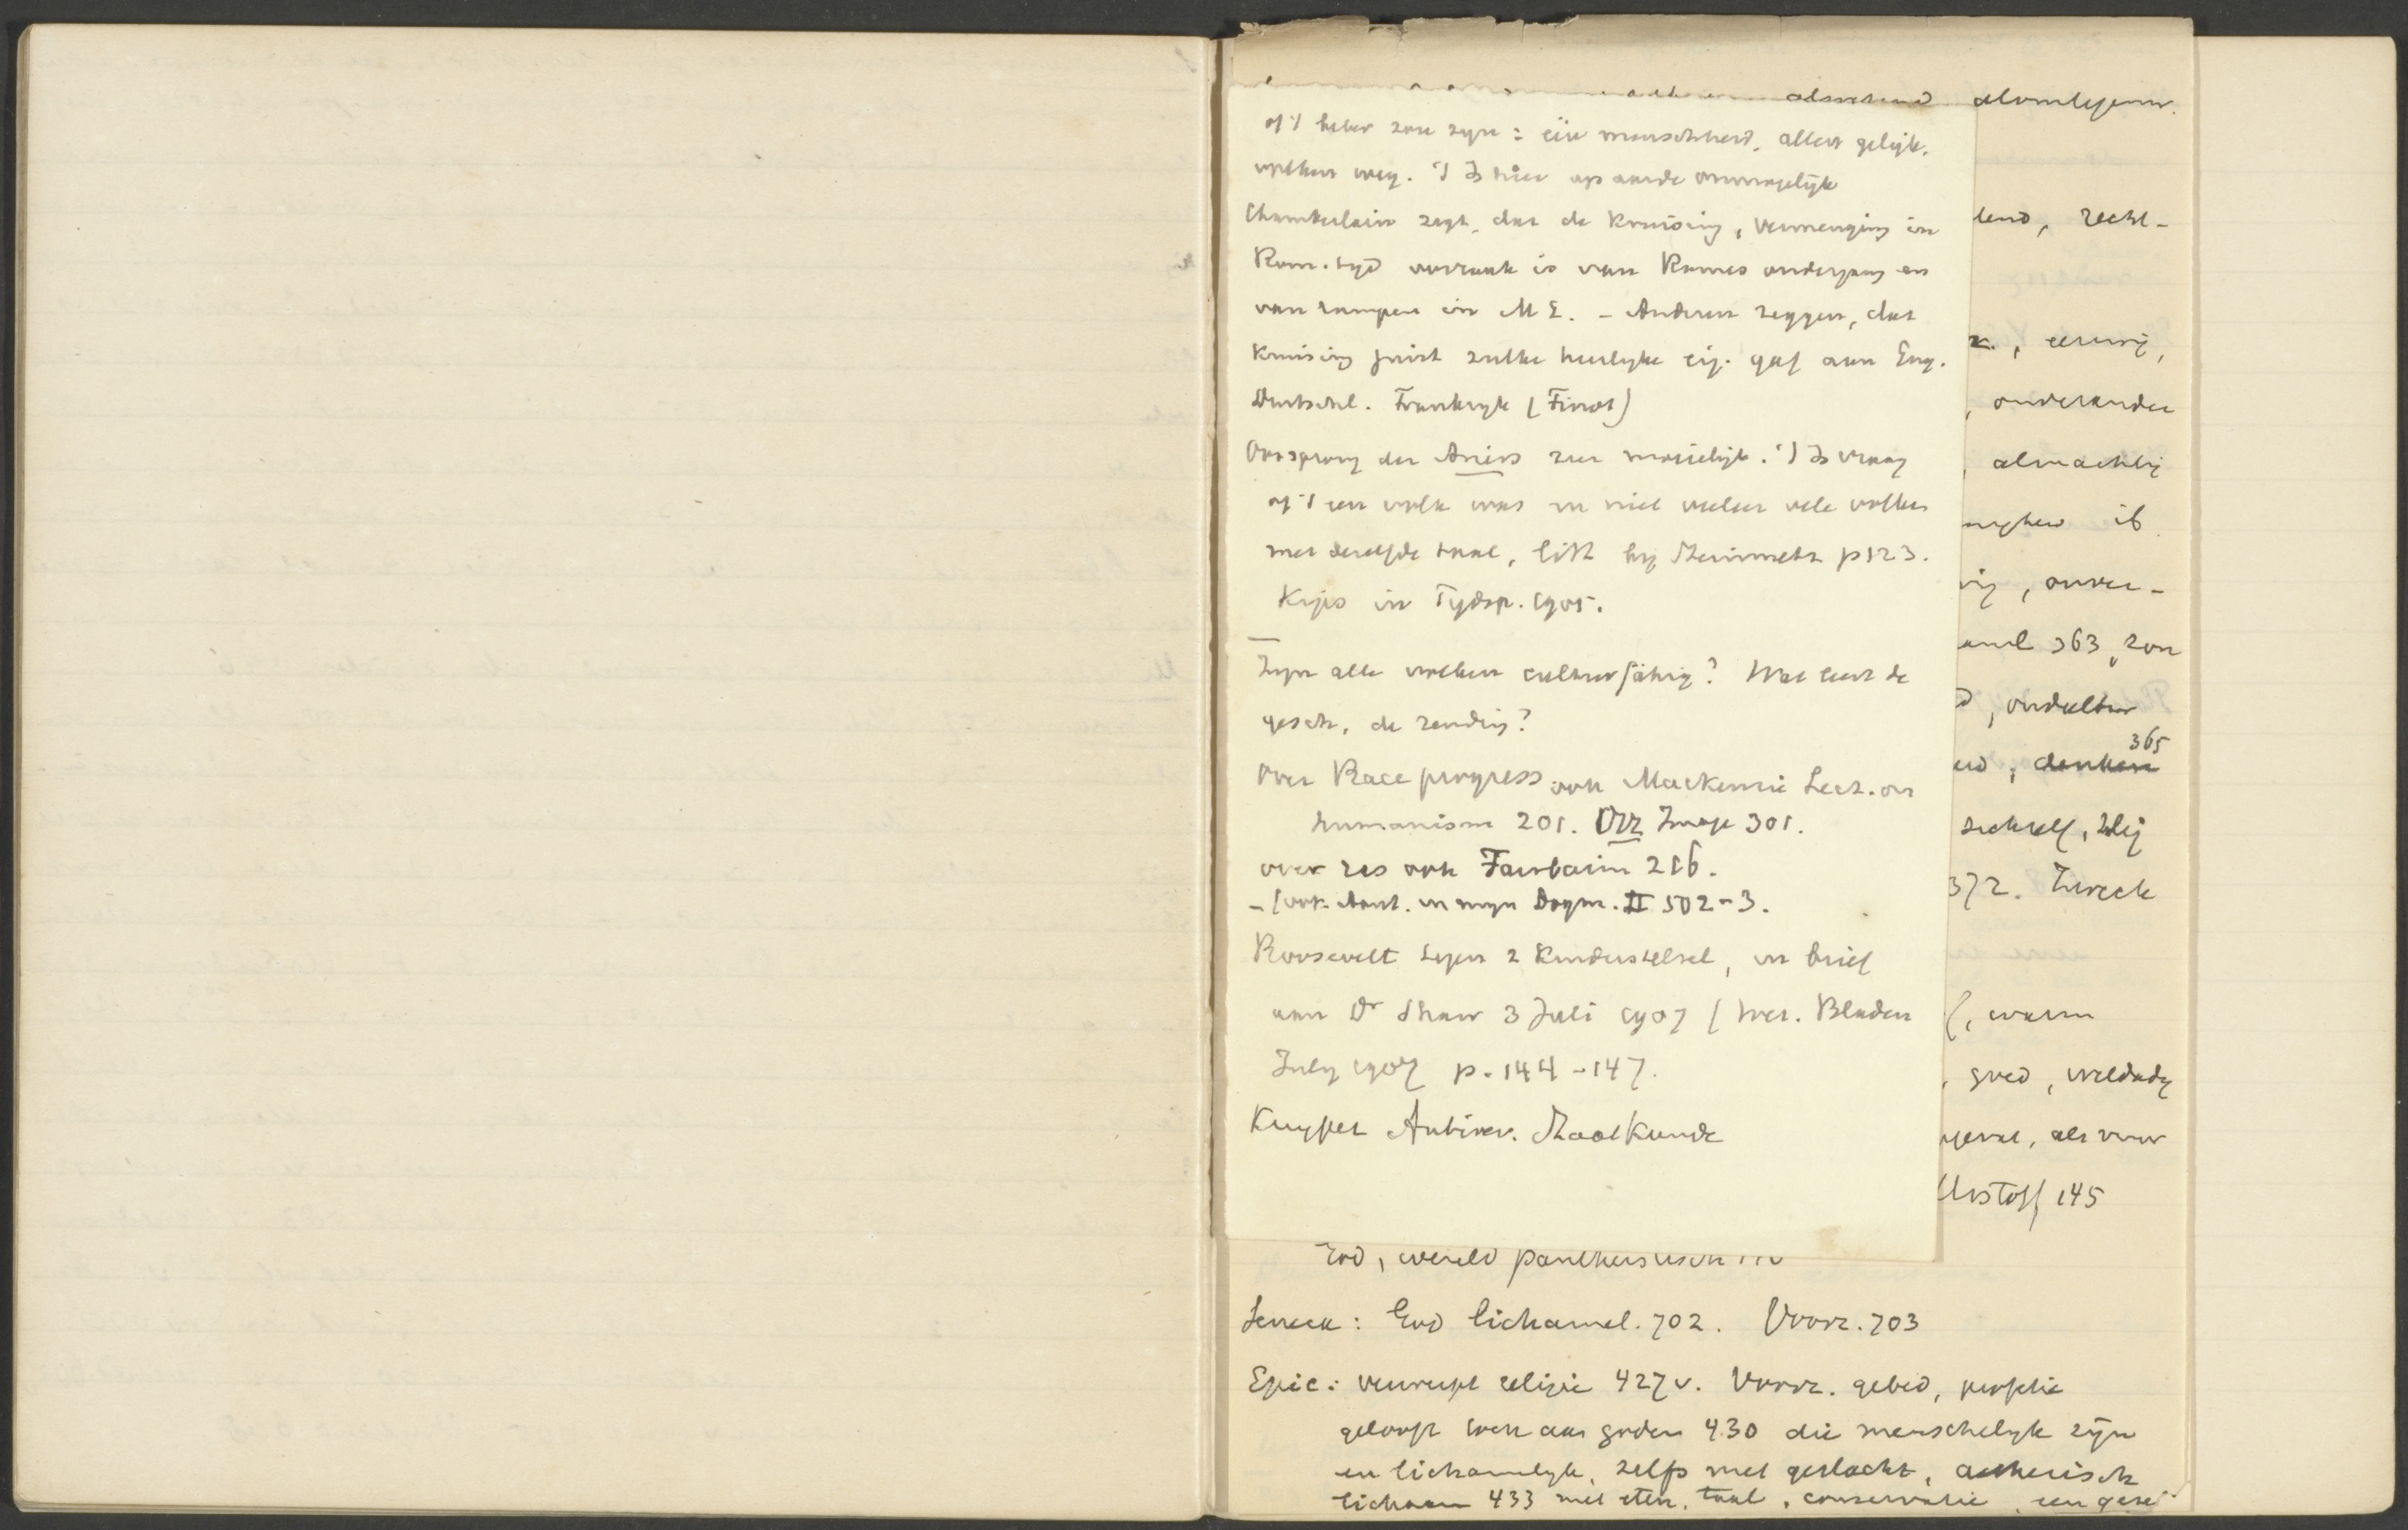 alwetend alomtegenw.
of 't beter zou zyn: één menschheid, alles gelijk.
volken weg. 't Is hier op aarde onmogelijk
Chamberlain zegt, dat de Kruising, vermenging in
Rom. tyd oorzaak is van Romes ondergang en
van rampen in M E. – Anderen zeggen, dat
Kruising juist zulke heerlyke eig. gaf aan Eng.
Duitschl. Frankryk (Finot)
Oorsprong der Ariers zeer moeielijk. 't Is vraag
of 't een volk was en niet veeleer vele volken
met dezelfde taal, litt by Steinmetz p 123.
in Tydsp. 1905.
Zyn alle volken culturfähig? Wat leert de
gesch. de zending?
Over Race progress ook Mackenzie Lect. on
humanism 201. Orr Image 301.
over ras ook Fairbairn 216.
– (ook Aant. in myn Dogm. II 502-3.
Roosevelt tegen 2 Kinderstelsel, in brief
aan Dr Shaw 3 Juli 1907 (Wet. Bladen
July 1907 p. 144-147.
Kuyper Antirev. Staatkunde
tend, recht-
, eeuwig,
, onverander
, almachtig
ib
, onver-
363, zon
, onderling
365
denken
zichzelf, zalig
372. Zweck
, warm
, goed, weldadig
, als vuur
Urstoff 145
God, wereld pantheistisch
Seneca: God lichamel. 702. Voorz. 703
Epic: verwerpt religie 427 v. Voorz. gebed, profetie
gelooft toch aan goden 430 die menschelyk zijn
en lichamelyk, zelfs met geslacht, aetherisch
lichaam 433 met eten, taal, conservatie, een gezel